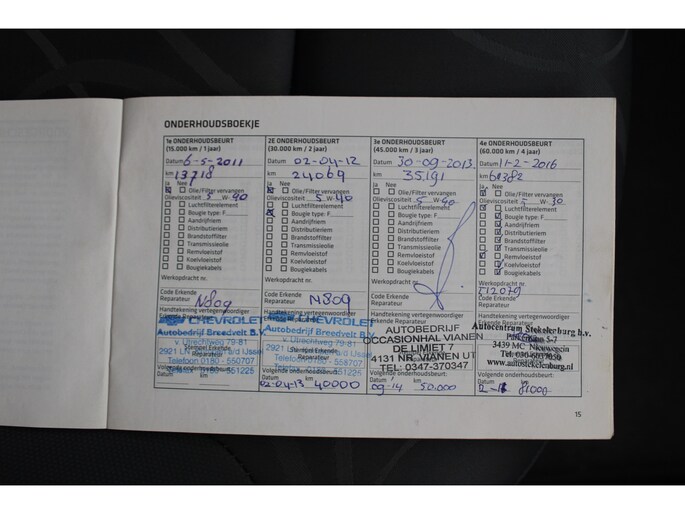 ONDERHOUDSBOEKJE
1e ONDERHOUDSBEURT
(15.000 km / 1 jaar)
Datum 6-5-2011
km 13718
Ja Nee
Olie/Filter vervangen
Olieviscositeit 5 W-40
Luchtfilterelement
Bougie type: F
Aandrijfriem
Distributieriem
Brandstoffilter
Transmissieolie
Remvloeistof
Koelvloeistof
Bougiekabels
Werkopdracht nr.
Code Erkende
Reparateur N809
Handtekening vertegenwoordiger
Erkende Reparateur
CHEVROLET
Autobedrijf Breedvelt B.V.
v. Utrechtweg 79-81
Stempel Erkende
Reparateur
Telefoon 0180 - 550751
Volgende onderhoudsbeurt:
Datum / km
2E ONDERHOUDSBEURT
(30.000 km / 2 jaar)
Datum 02-04-12
km 24069
Ja Nee
Olie/Filter vervangen
Olieviscositeit 5 W-40
Luchtfilterelement
Bougie type: F
Aandrijfriem
Distributieriem
Brandstoffilter
Transmissieolie
Remvloeistof
Koelvloeistof
Bougiekabels
Werkopdracht nr.
Code Erkende
Reparateur N809
Handtekening vertegenwoordiger
Erkende Reparateur
CHEVROLET
Autobedrijf Breedvelt B.V.
v. Utrechtweg 79-81
Stempel Erkende
Reparateur
Telefoon 0180 - 550751
Volgende onderhoudsbeurt:
Datum / km
02-04-13 40000
3e ONDERHOUDSBEURT
(45.000 km / 3 jaar)
Datum 30-09-2013
km 35.191
Ja Nee
Olie/Filter vervangen
Olieviscositeit 5 W-40
Luchtfilterelement
Bougie type: F
Aandrijfriem
Distributieriem
Brandstoffilter
Transmissieolie
Remvloeistof
Koelvloeistof
Bougiekabels
Werkopdracht nr.
Code Erkende
Reparateur
Handtekening vertegenwoordiger
Erkende Reparateur
AUTOBEDRIJF
OCCASIONHAL VIANEN
DE LIMIET 7
4131 NR. VIANEN UT
TEL: 0347-370347
Volgende onderhoudsbeurt:
Datum / km
09-14 50.000
4e ONDERHOUDSBEURT
(60.000 km / 4 jaar)
Datum 11-2-2016
km
Ja Nee
Olie/Filter vervangen
Olieviscositeit 5 W-30
Luchtfilterelement
Bougie type: F
Aandrijfriem
Distributieriem
Brandstoffilter
Transmissieolie
Remvloeistof
Koelvloeistof
Bougiekabels
Werkopdracht nr.
Code Erkende
Reparateur
Handtekening vertegenwoordiger
Erkende Reparateur
Autocentrum Stekelenburg b.v.
5-7
3439 MC Nieuwegein
www.autostekelenburg.nl
Volgende onderhoudsbeurt:
Datum / km
15